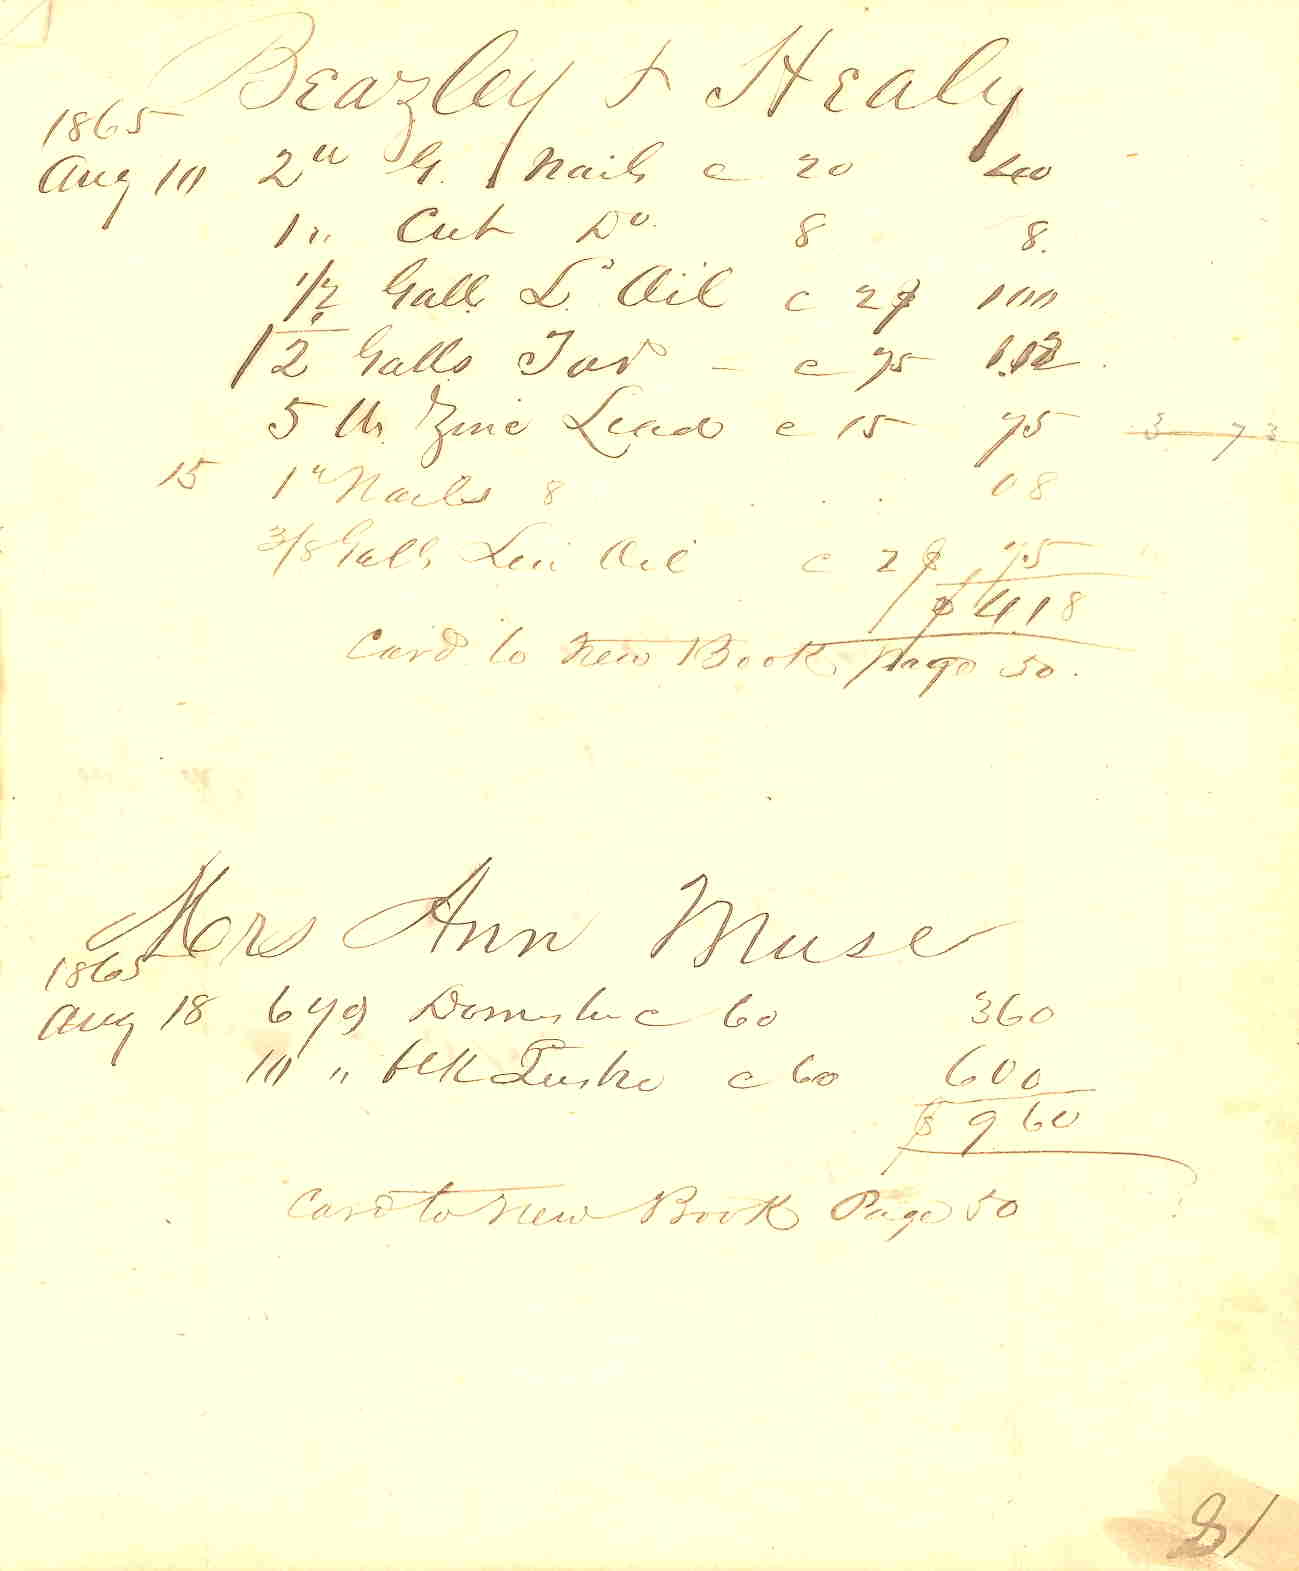 Beazley & Healy
1865
Aug 10 2 lb G. Nails c 20 40
1 " Cut Do. 8 8.
1/2 Gall L. Oil c 2$ 100
1 1/2 Galls Tar - c 75 1.12
5 lb Zinc Lead c 15 75 3 73
15 1 " Nails 8 08
3/8 Galls Lin Oil c 2$ 75
$ 4 18
Card to New Book Page 50.
Mrs Ann Muse
1865
Aug 18 6 yds Domestic c 60 360
10 " blk Lustre c 60 600
$ 9 60
Card to New Book Page 50
21